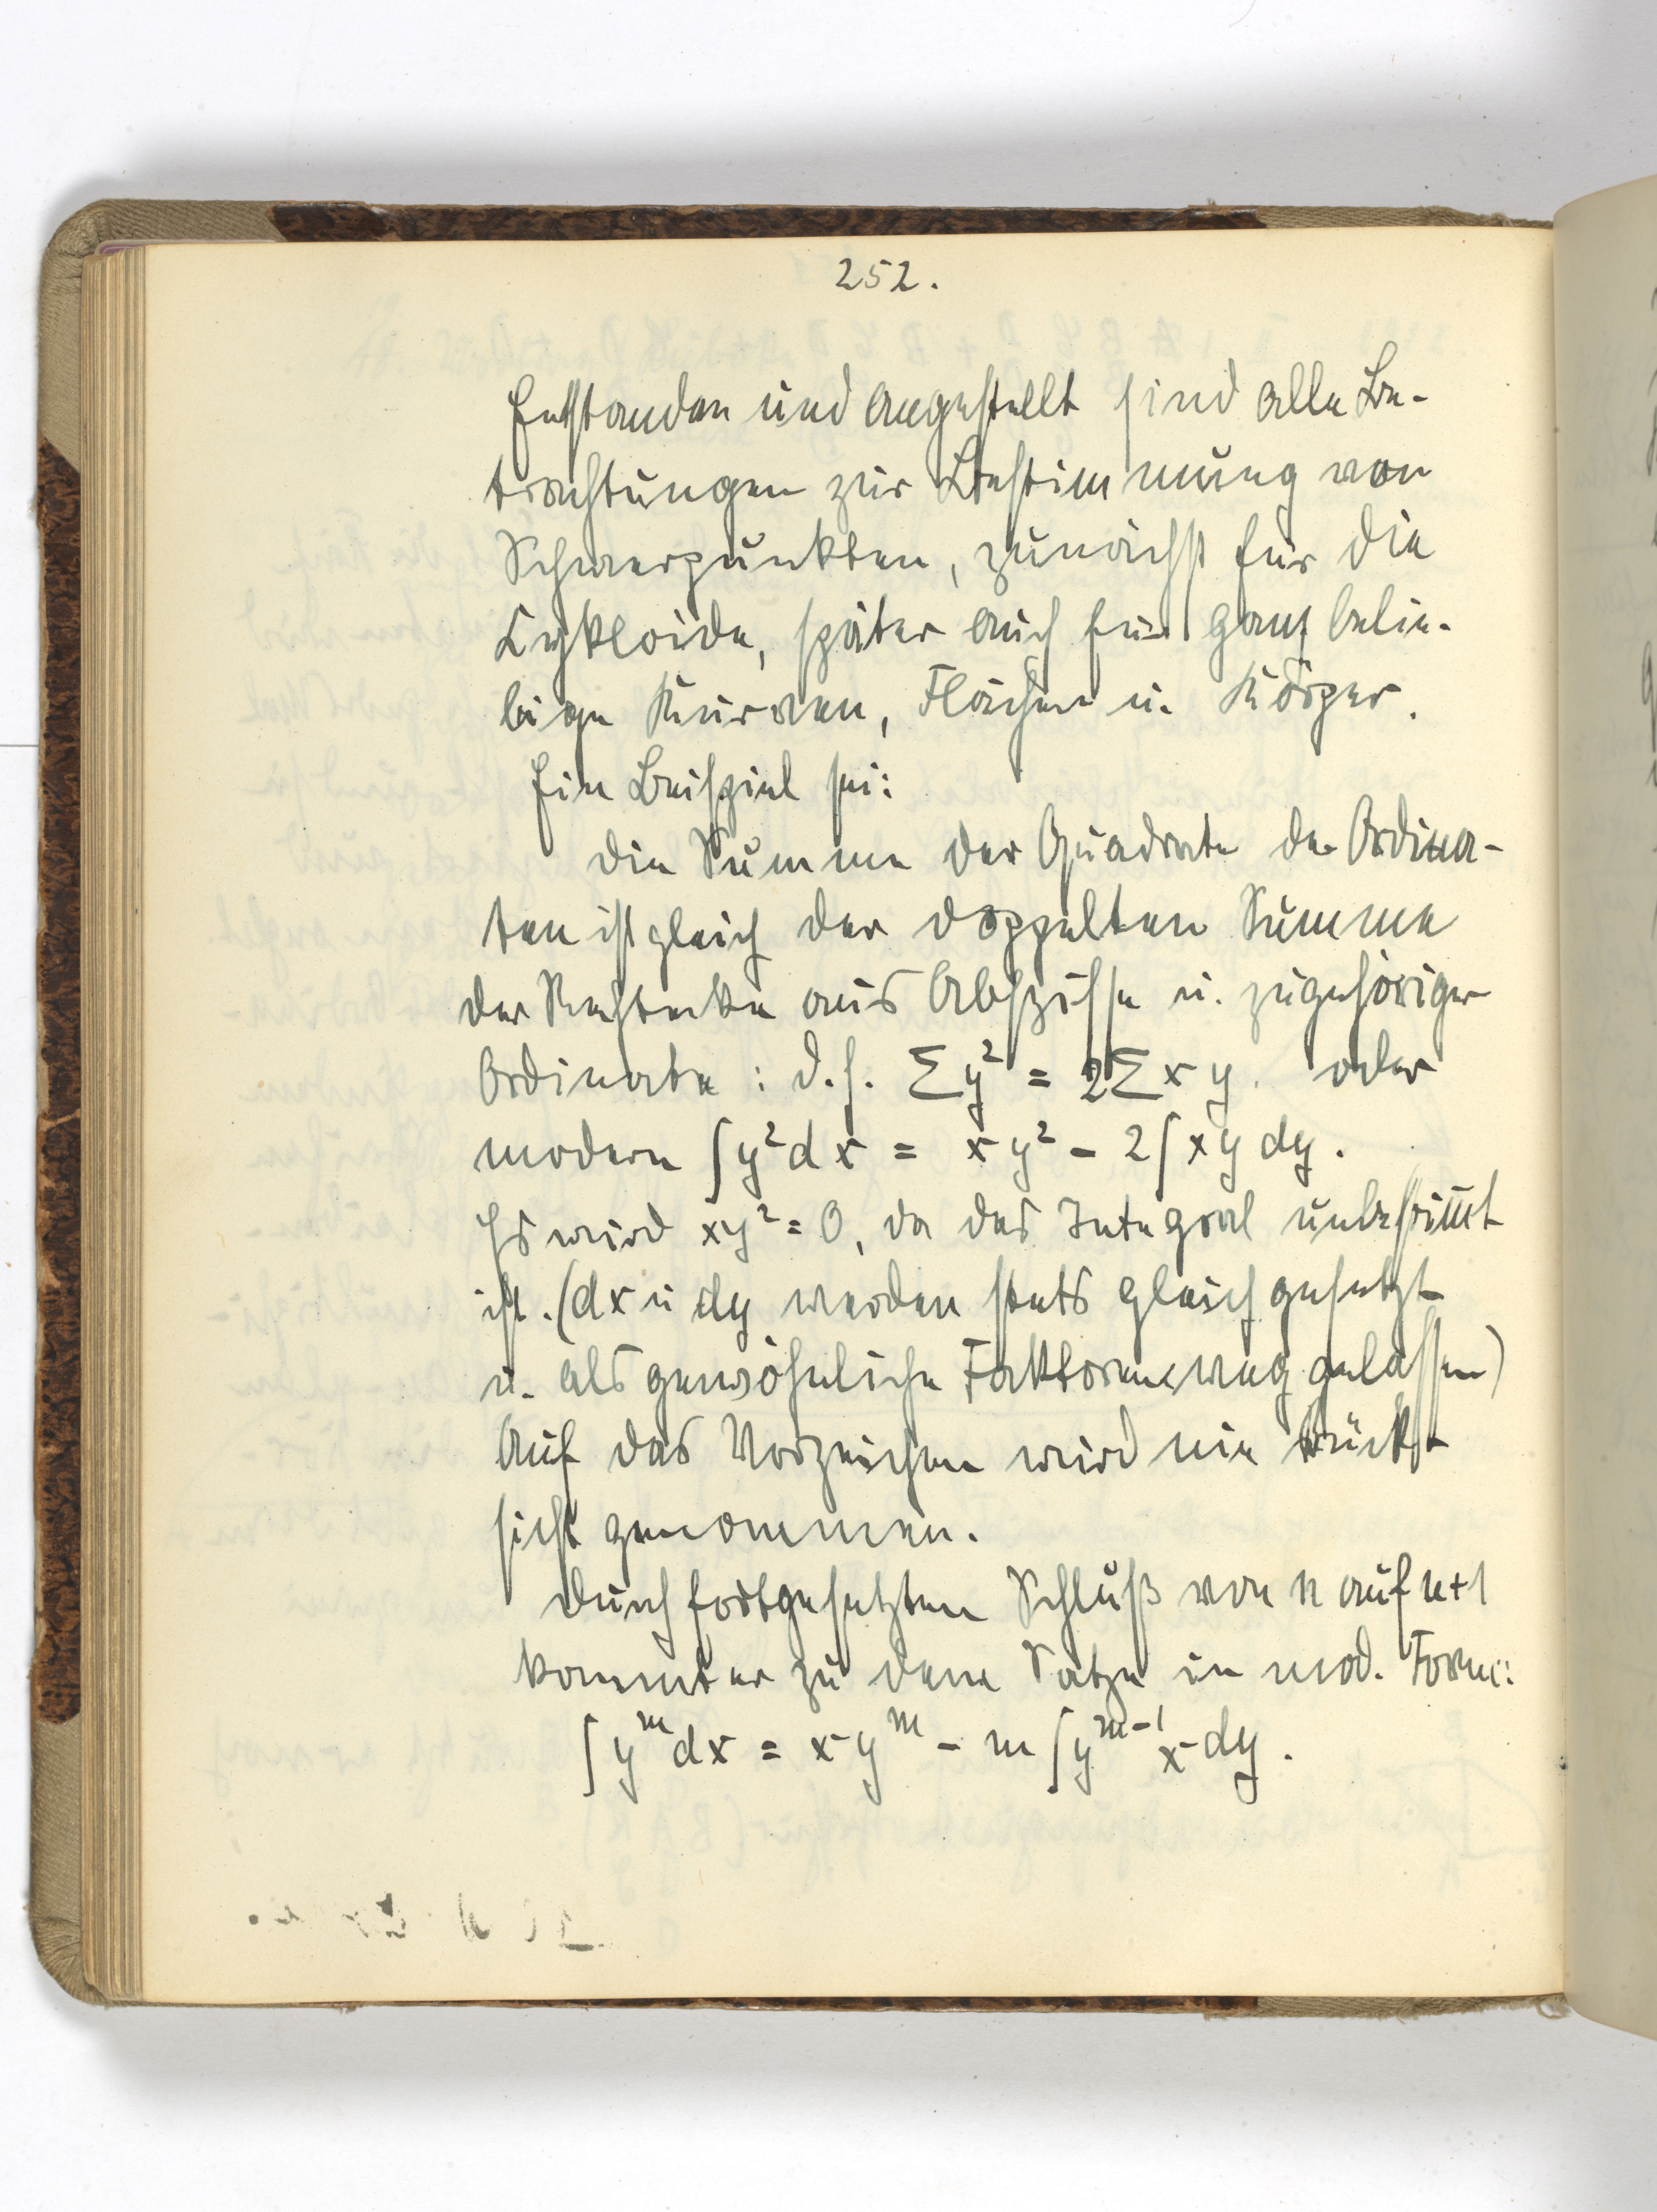 252.
Entstanden und angestellt sind alle Be-
trachtungen zur Bestimmung von
Schwerpunkten, zunächst für die
Cykloide, später auch für ganz belie-
bige Kurven, Flächen u. Körper.
Ein Beispiel sei:
Die Summe der Quadrate der Ordina-
ten ist gleich der doppelten Summe
der Rechtecke aus Abszisse u. zugehöriger
Ordinate: d.h. Σy² = 2Σxy. oder
modern ∫y²dx = xy² - 2∫xy dy.
Es wird xy² = 0, da das Integral unbestimmt
ist. (dx u dy werden stets gleich gesetzt
u. als gewöhnliche Faktoren weg gelassen)
Auf das Vorzeichen wird nie Rück
sicht genommen.
Durch fortgesetzten Schluß von n auf n+1
kommt er zu dem Satze in mod. Form:
∫yᵐdx = xyᵐ - m∫yᵐ⁻¹x dy.